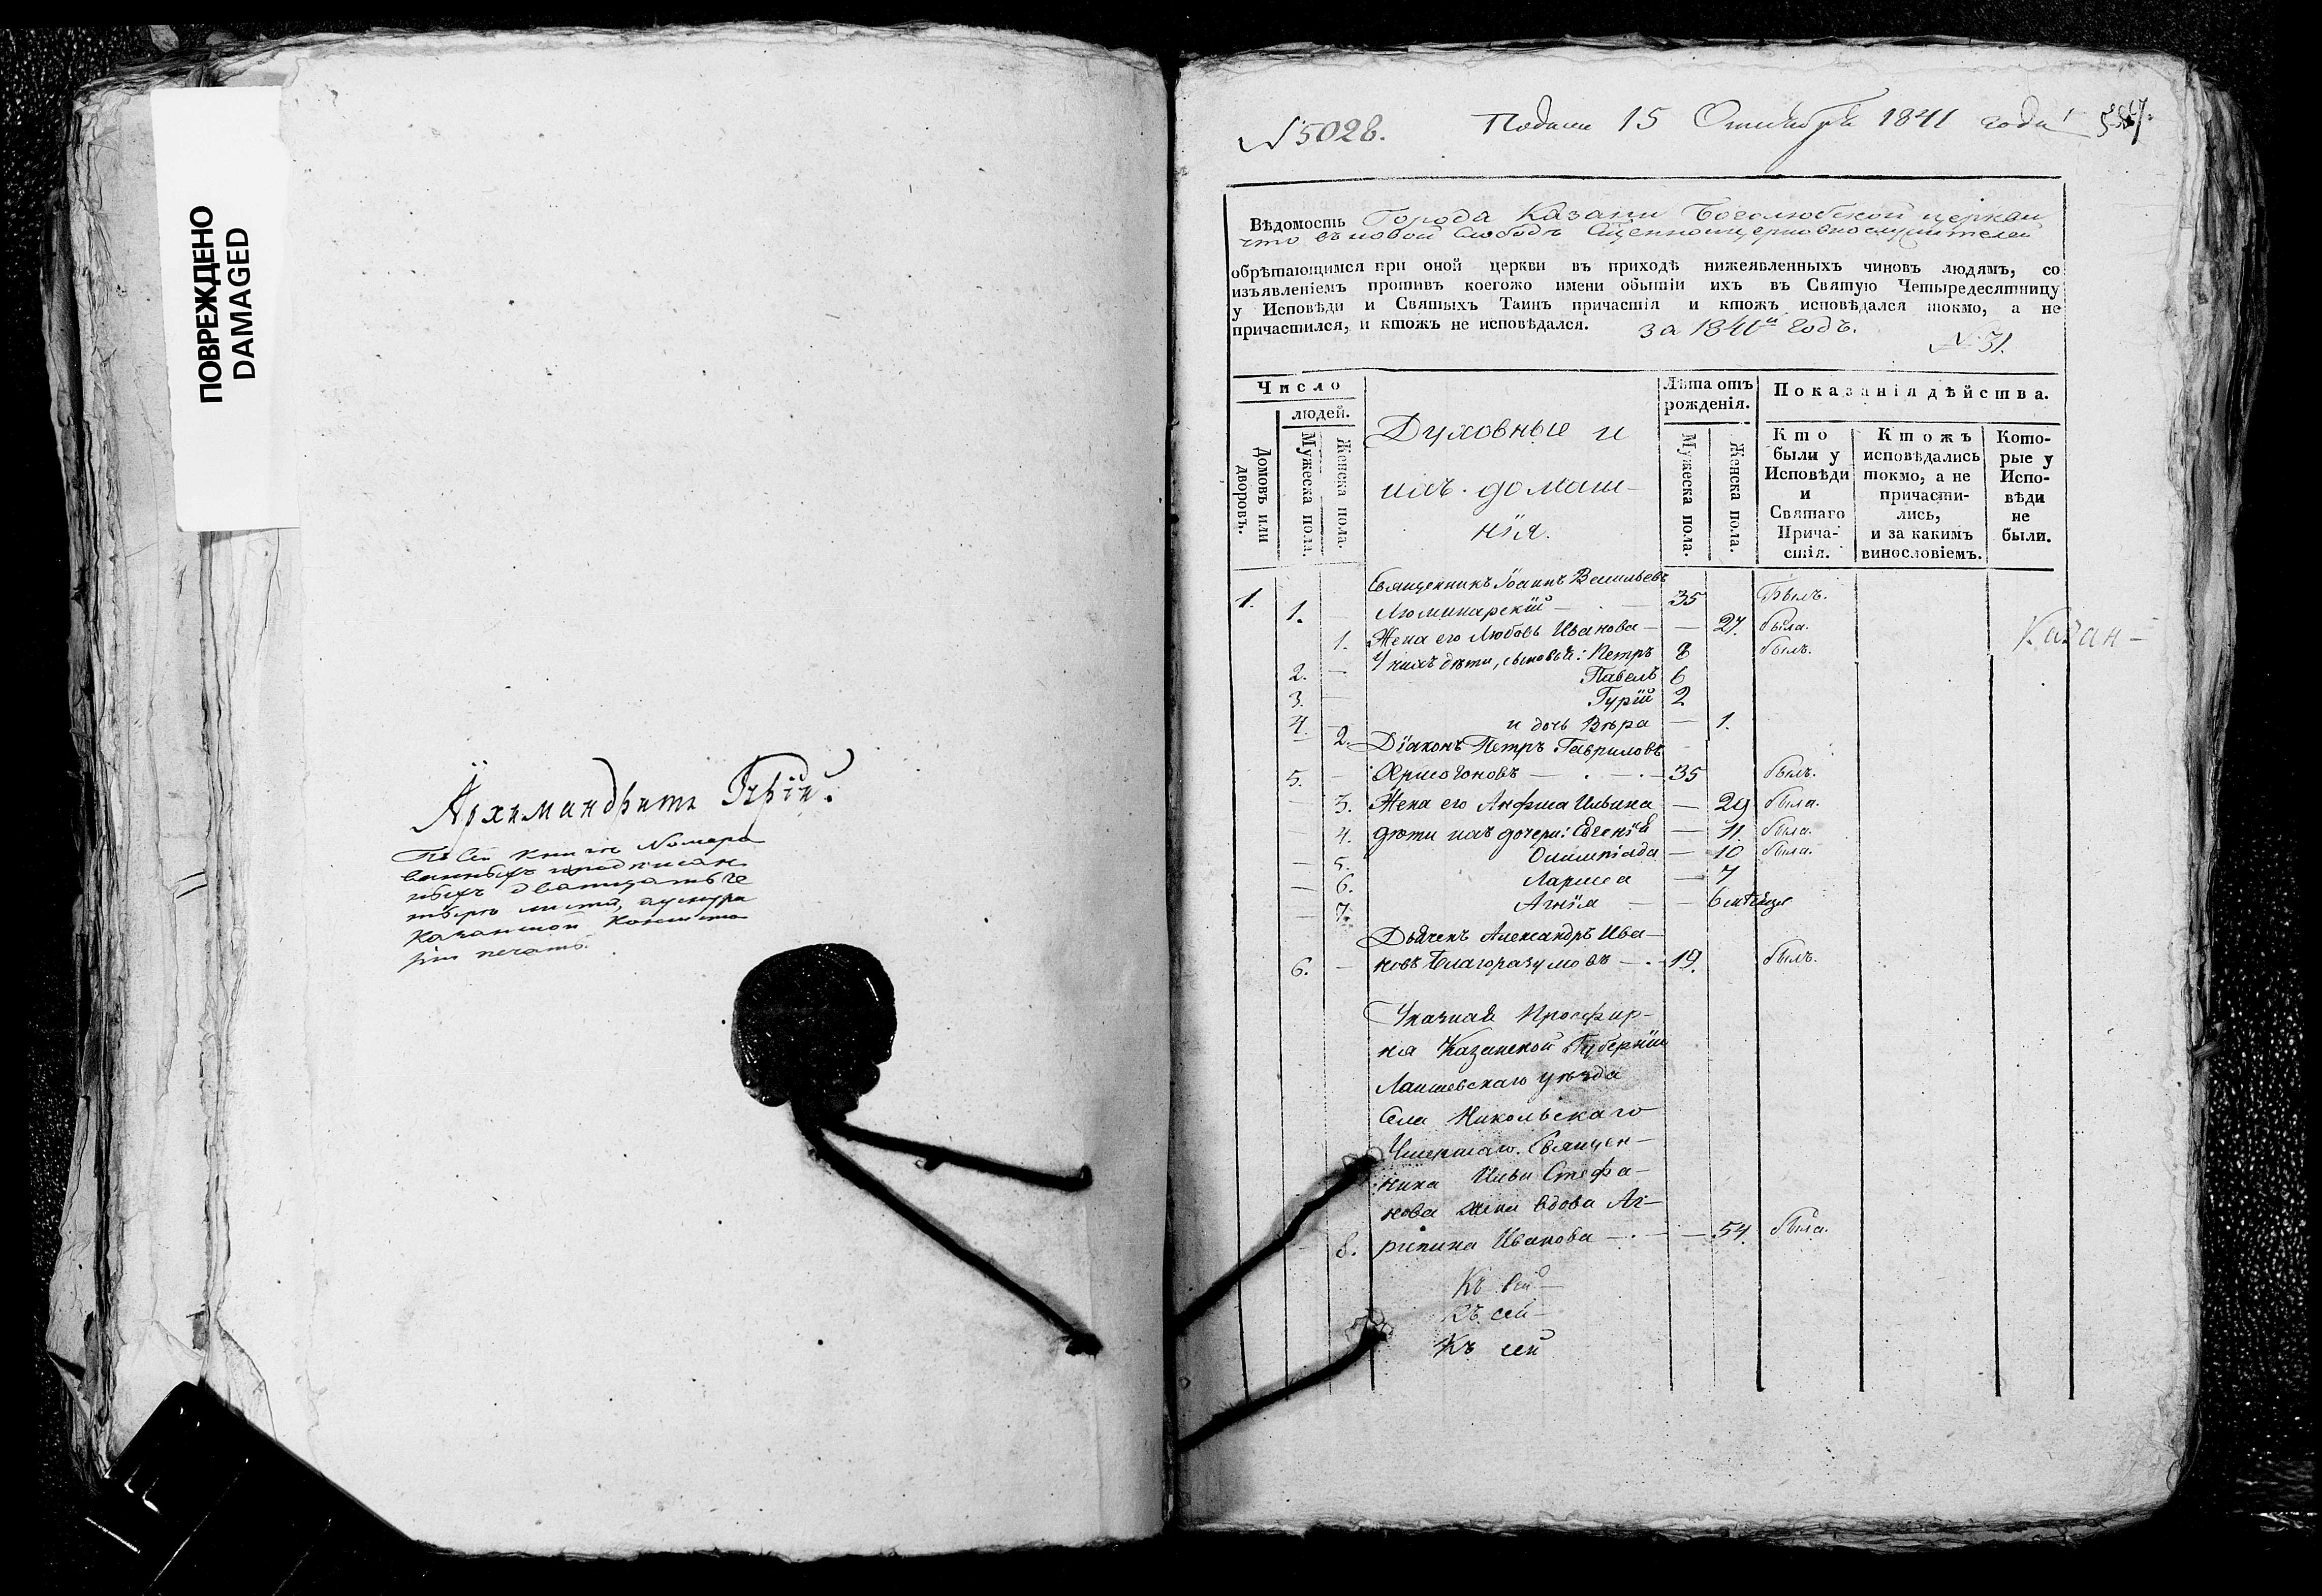 ПОВРЕЖДЕНО
DAMAGED
Архимандритъ Гурій.
Въ сей книге Номеро
ванныхъ
печать.
№ 5028.
15 Октября 1841 года
Вѣдомость Города Казани Боголюбской церкви
что въ новой Слободѣ Сщенноицерковнослужителей
обрѣтающимся при оной церкви въ приходѣ нижеявленныхъ чиновъ людямъ, со
изъявленіемъ противъ коегожо имени обытіи ихъ въ Святую Четыредесятницу
у Исповѣди и Святыхъ Таинъ причастія и ктожъ исповѣдался токмо, а не
причастился, и ктожъ не исповѣдался. за 1841й годъ.
№ 31.
Число
людей.
Домовъ или дворовъ.
Мужеска пола.
Женска пола.
Духовные и
ихъ домаш-
нія.
Лѣта отъ
рожденія.
Мужеска пола.
Женска пола.
Показанія дѣйства.
Кто
были у
Исповѣди
и
Святаго
Прича-
стія.
Ктожъ
исповѣдались
токмо, а не
причасти-
лись,
и за какимъ
винословіемъ.
Кото-
рые у
Испо-
вѣди
не
были.
Священникъ Іоаннъ Васильевъ
1. 1. Люминарскій — 35 Былъ.
1. Жена его Любовь Иванова — — 27. была.
У нихъ дѣти, сыновья: Петръ 8 былъ.
2. — Павелъ 6
3. — Гурій 2
4. — и дочь Вѣра — 1.
2. Діаконъ Петръ Гавриловъ
5. — Хрисогоновъ — 35 былъ.
— 3. Жена его Анфиса Ильина — 29 была.
— 4. дѣти ихъ дочери: Евгенія — 11 была.
— 5. Олимпіада — 10 была.
— 6. Лариса — 7
— 7. Агнія — — 6 мѣсяца
Дьячекъ Александръ Ива-
6. — новъ Благоразумовъ — 19. былъ.
Указная Просфир-
ня Казанской Губерніи
Лаишевскаго уѣзда
Села Никольскаго
Священ-
ника Ильи Стефа-
нова жена вдова Аг-
8. рипина Иванова — — 54. была.
Къ сей
Къ сей
Къ сей
Казан-